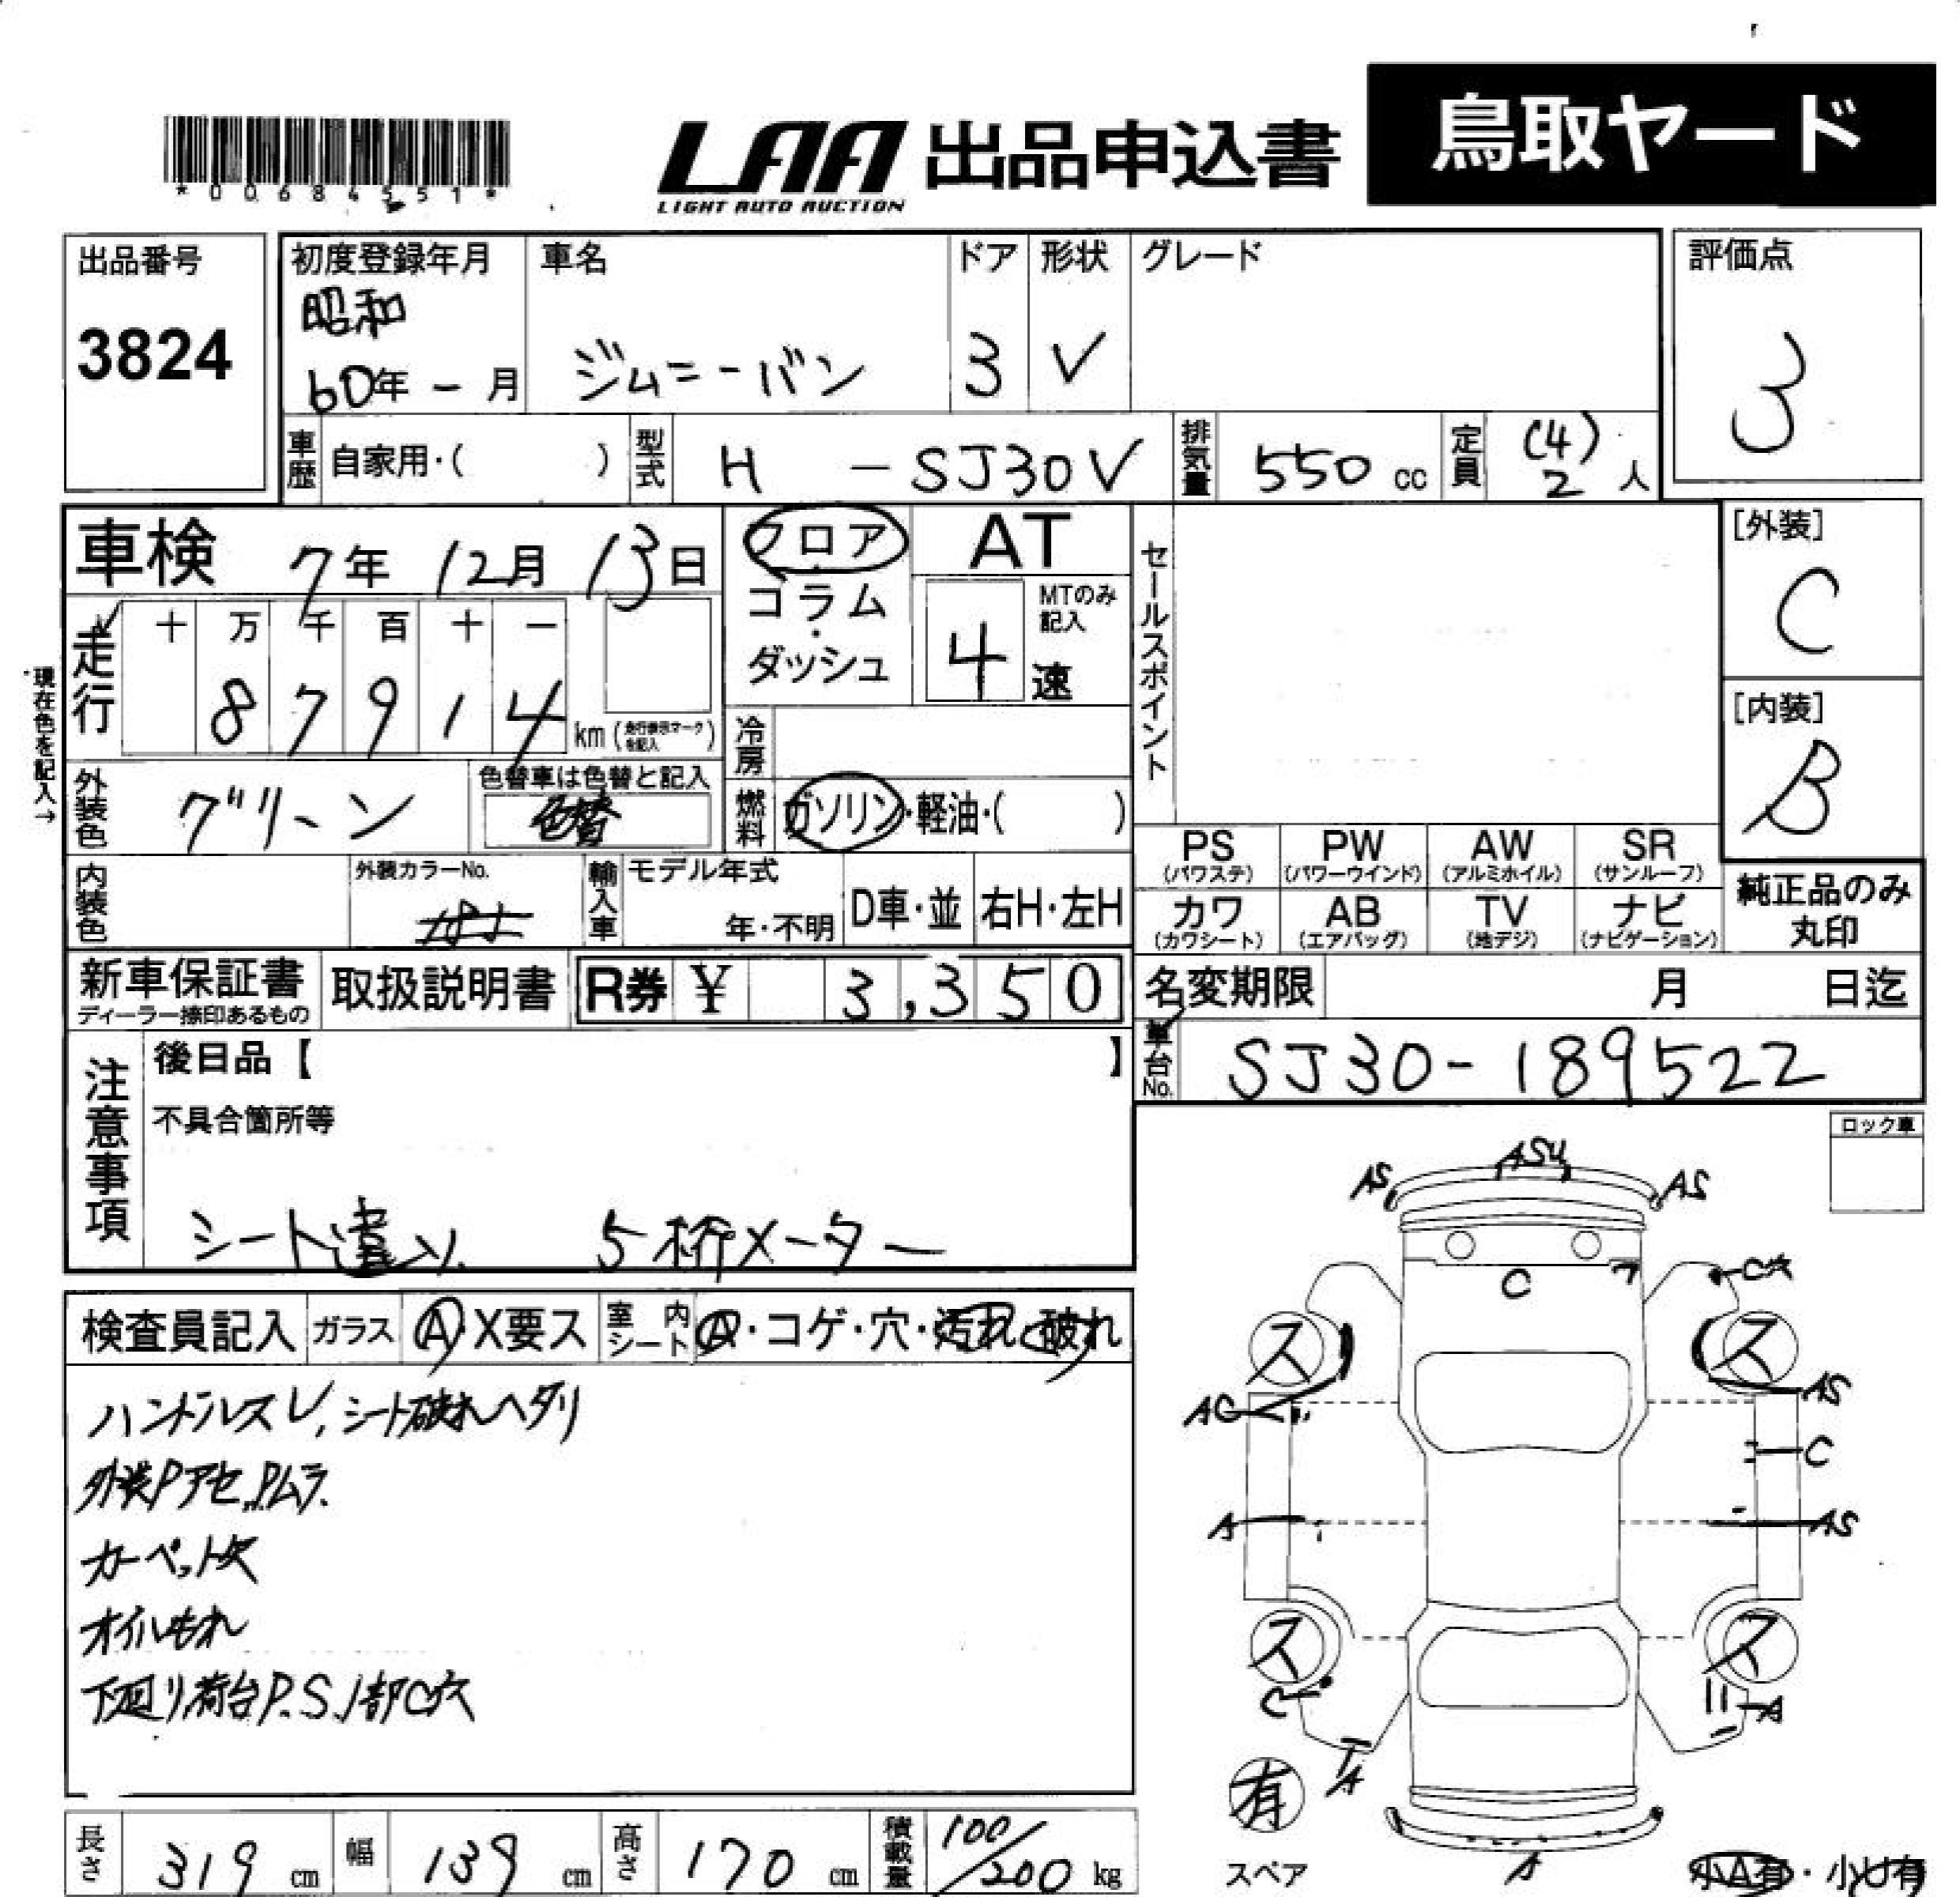 *00684551*
LAA 出品申込書
LIGHT AUTO AUCTION
鳥取ヤード
出品番号
3824
初度登録年月
昭和
60年 - 月
車名
ジムニーバン
ドア
3
形状
V
グレード
評価点
3
車歴 自家用・( )
型式 H -SJ30V
排気量 550 cc
定員 (4)
2 人
車検 7年 12月 13日
走行 十 万 千 百 十 一
8 7 9 1 4 km (走行表示マークを記入)
現在色を記入→
フロア
コラム
・
ダッシュ
AT
MTのみ
記入
4 速
冷房
燃料 ガソリン・軽油・( )
セールスポイント
[外装]
C
[内装]
B
外装色 グリーン
色替車は色替と記入
色替
内装色
外装カラーNo.
輸入車
モデル年式
年・不明
D車・並
右H・左H
PS (パワステ)
PW (パワーウインド)
AW (アルミホイル)
SR (サンルーフ)
カワ (カワシート)
AB (エアバッグ)
TV (地デジ)
ナビ (ナビゲーション)
純正品のみ
丸印
新車保証書
ディーラー捺印あるもの
取扱説明書
R券 ¥ 3,350
名変期限 月 日迄
車台No. SJ30-189522
注意事項
後日品【 】
不具合箇所等
シート違い 5桁メーター
ロック車
検査員記入 ガラス A X要ス 室内シート A・コゲ・穴・汚れ・破れ
ハンドルスレ, シート破れヘタリ
外装Pアセ, Pムラ
カーペット欠
オイルもれ
下廻り荷台P.S.1部C穴
AS
ASU
AS
C
ス
ス
AS
C
A
AS
ス
ス
C
A
A
有
スペア
A
小A有・小U有
長さ 319 cm
幅 139 cm
高さ 170 cm
積載量 100/200 kg